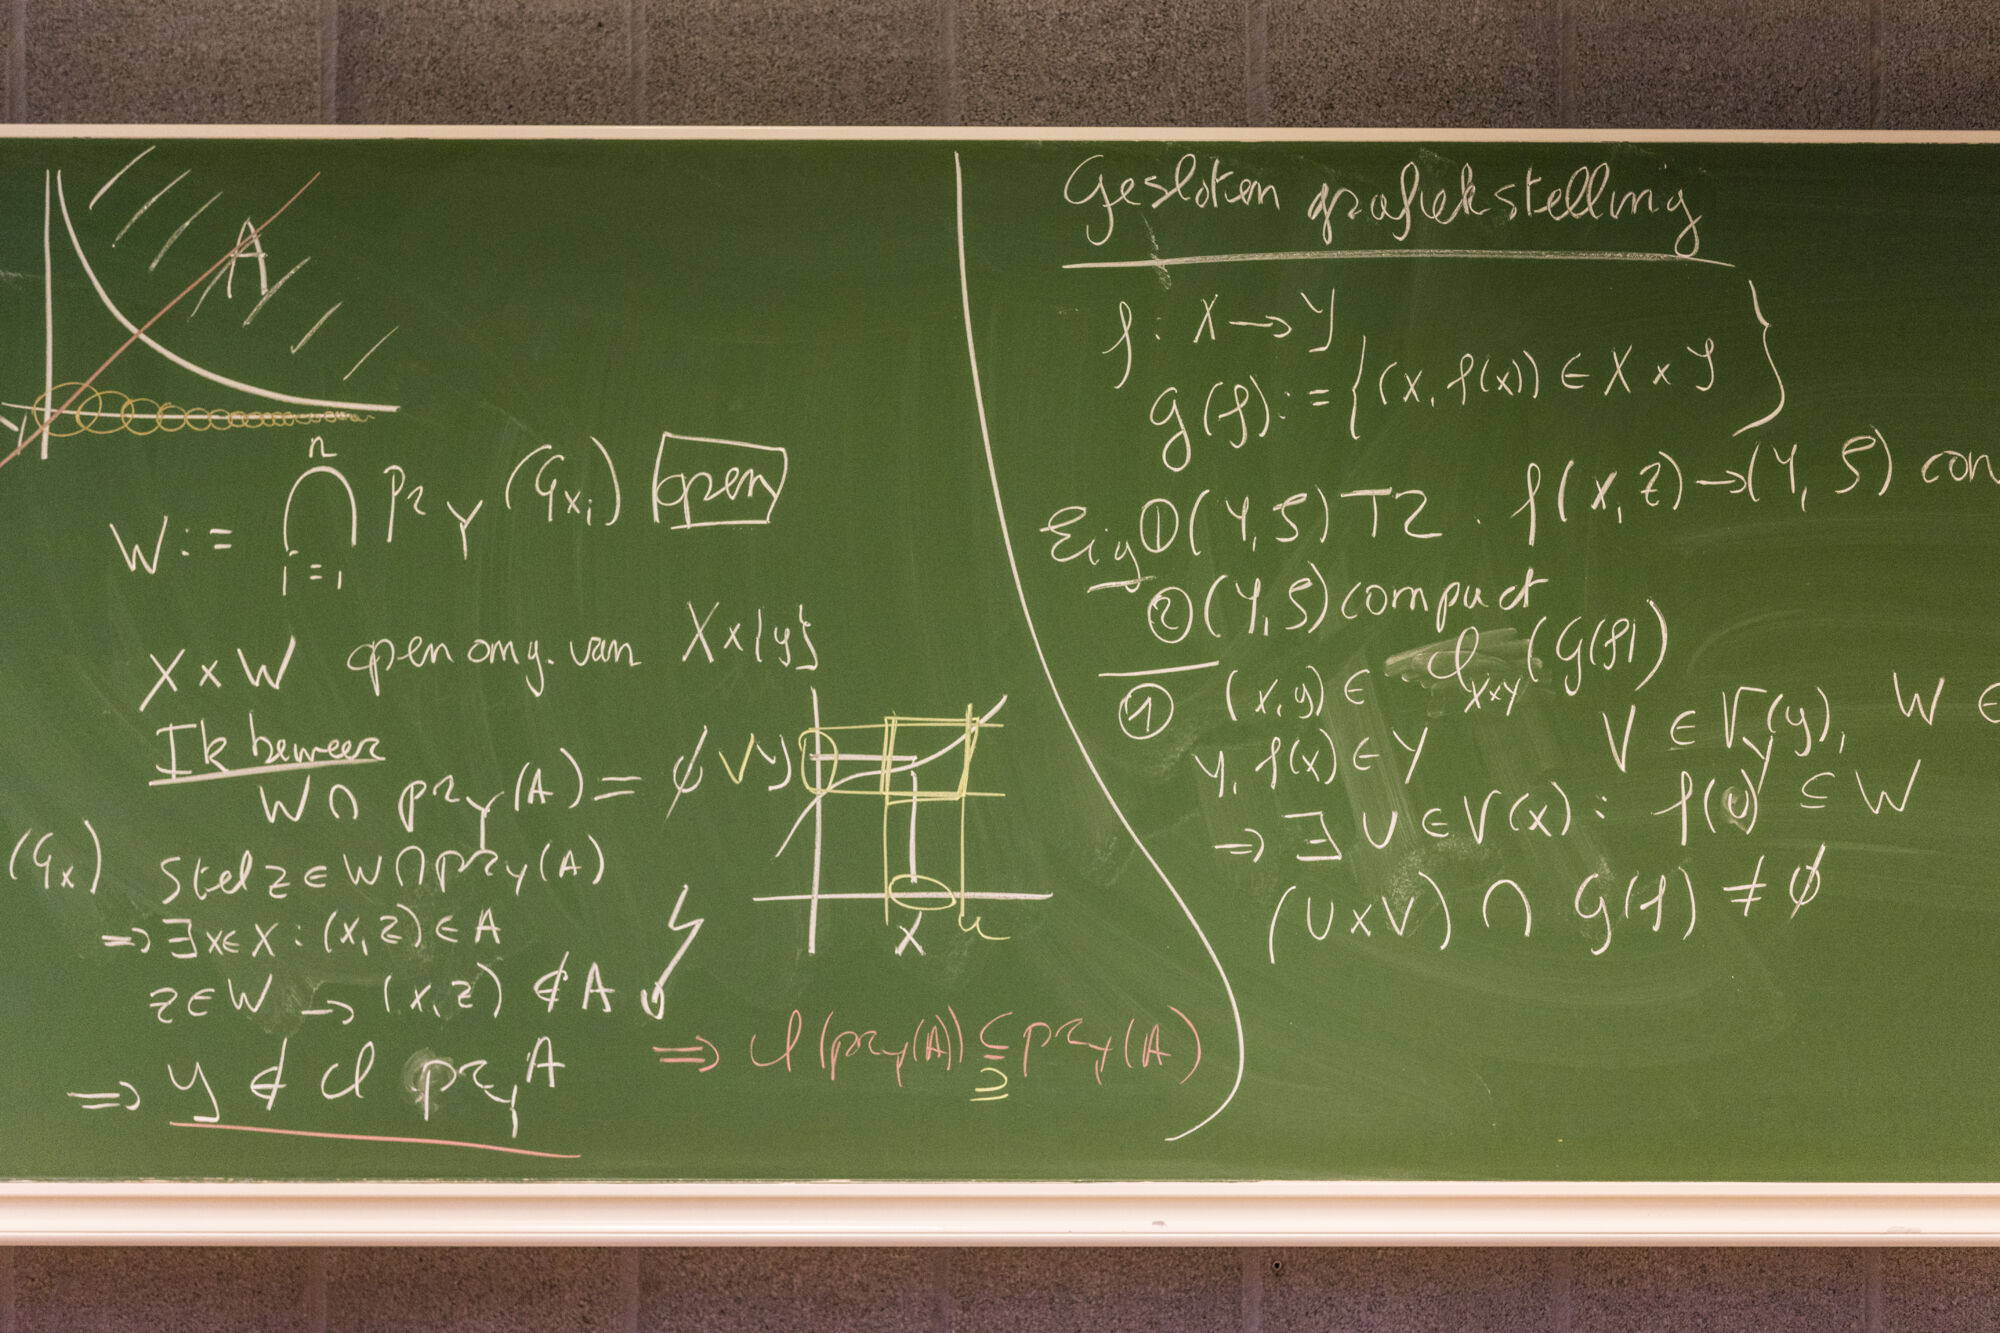 A
W := ⋂ᵢ₌₁ⁿ pr_Y (G_{x_i}) open
X × W open omg. van X × {y}
Ik beweer
W ∩ pr_Y(A) = ∅
(G_x) Stel z ∈ W ∩ pr_Y(A)
⇒ ∃ x ∈ X : (x, z) ∈ A
z ∈ W → (x, z) ∉ A
⇒ y ∉ cl pr_Y A
⇒ cl(pr_Y(A)) ⊆ pr_Y(A)
⊇
V y
x u
Gesloten grafiekstelling
f : X → Y
G(f) := {(x, f(x)) ∈ X × Y}
Eig ① (Y, S) T2 . f(X, Z) → (Y, S) con
② (Y, S) compact
① (x, y) ∈ cl_{X×Y} (G(f))
y, f(x) ∈ Y V ∈ V_Y(y), W ∈
⇒ ∃ U ∈ V(x) : f(U) ⊆ W
(U × V) ∩ G(f) ≠ ∅